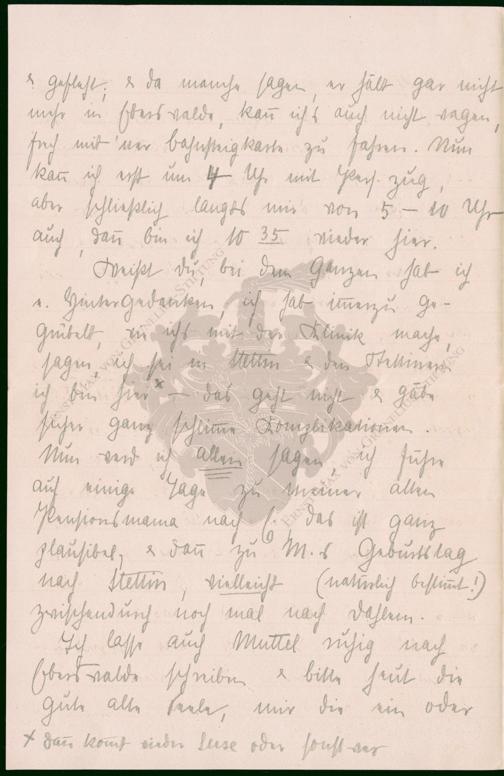 & gefleht; & da manche sagen, er hält gar nicht
mehr in Eberswalde, kann ich's auch nicht wagen,
frech mit 'ner Bahnsteigkarte zu fahren. Nun
kann ich erst um 4 Uhr mit Pers. zug,
aber schließlich langt's mir von 5 – 10 Uhr
auch, dann bin ich 10 35 wieder hier.
Weißt du, bei dem Ganzen hab ich
e. Hintergedanken, ich hab immerzu ge-
grübelt, wie ich's mit der Klinik mache,
sagen, ich sei in Stettin & den Stettinern,
ich bin hier x – das geht nicht & gäbe
sicher ganz schlimme Komplikationen.
Nun werd ich allen sagen, ich führe
auf einige Tage zu meiner alten
Pensionsmama nach G. Das ist ganz
plausibel, & dann zu M.s Geburtstag
nach Stettin, vielleicht (natürlich bestimmt!)
zwischendurch noch mal nach Dahlem.
Ich lasse auch Muttel ruhig nach
Eberswalde schreiben & bitte heut die
gute alte Seele, mir die ein oder
x dann kommt wieder Leese oder sonst wer
ERNST MAX VON GRUNELIUS-STIFTUNG